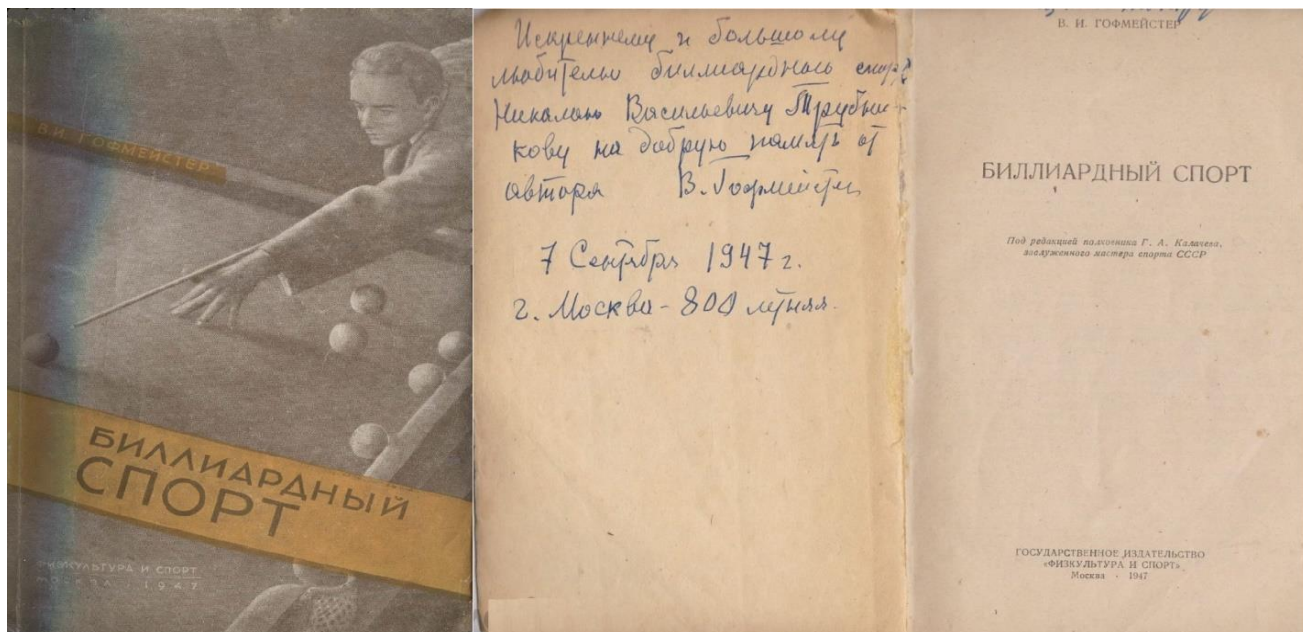 В. И. ГОФМЕЙСТЕР
БИЛЛИАРДНЫЙ
СПОРТ
ФИЗКУЛЬТУРА И СПОРТ
МОСКВА · 1947
Искреннему и большому
любителю биллиардного спорта
Николаю Васильевичу Трубни-
кову на добрую память от
автора В. Гофмейстер
7 Сентября 1947 г.
г. Москва - 800 летняя.
В. И. ГОФМЕЙСТЕР
БИЛЛИАРДНЫЙ СПОРТ
Под редакцией полковника Г. А. Калачева,
заслуженного мастера спорта СССР
ГОСУДАРСТВЕННОЕ ИЗДАТЕЛЬСТВО
«ФИЗКУЛЬТУРА И СПОРТ»
Москва · 1947